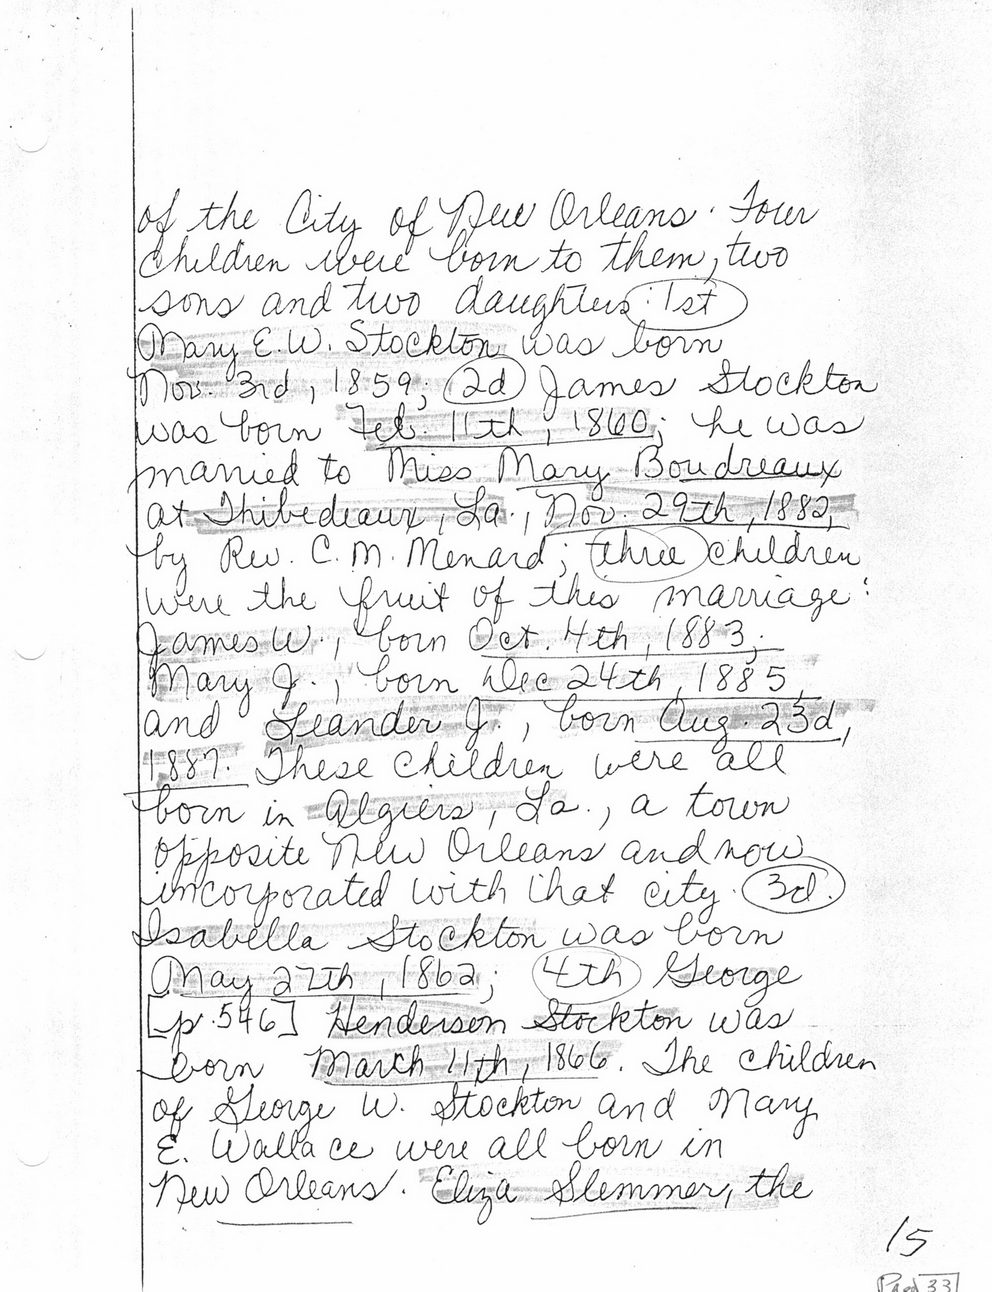 of the City of New Orleans. Four
children were born to them, two
sons and two daughters: 1st
Mary E. W. Stockton was born
Nov. 3rd, 1859; 2d James Stockton
was born Feb. 11th, 1860; he was
married to Miss Mary Boudreaux
at Thibedeaux, La., Nov. 29th, 1882,
by Rev. C. M. Menard; three children
were the fruit of this marriage:
James W., born Oct. 4th, 1883;
Mary J., born Dec 24th, 1885,
and Leander J., born Aug. 23d,
1887. These children were all
born in Algiers, La., a town
opposite New Orleans and now
incorporated with that city. 3d.
Isabella Stockton was born
May 27th, 1862; 4th George
[p. 546] Henderson Stockton was
born March 11th, 1866. The children
of George W. Stockton and Mary
E. Wallace were all born in
New Orleans. Eliza Slemmer, the
15
33